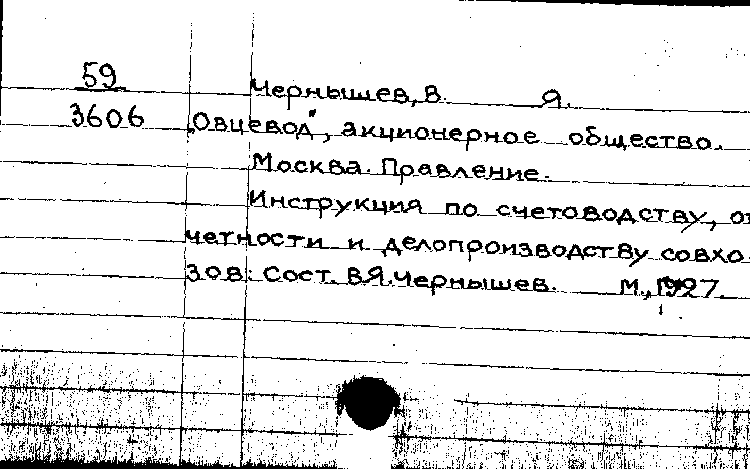 59
Чернышев, В. Я.
3606
„Овцевод", акционерное общество.
Москва. Правление.
Инструкция по счетоводству, от
четности и делопроизводству совхо-
зов. Сост. В.Я. Чернышев. М., 1927.